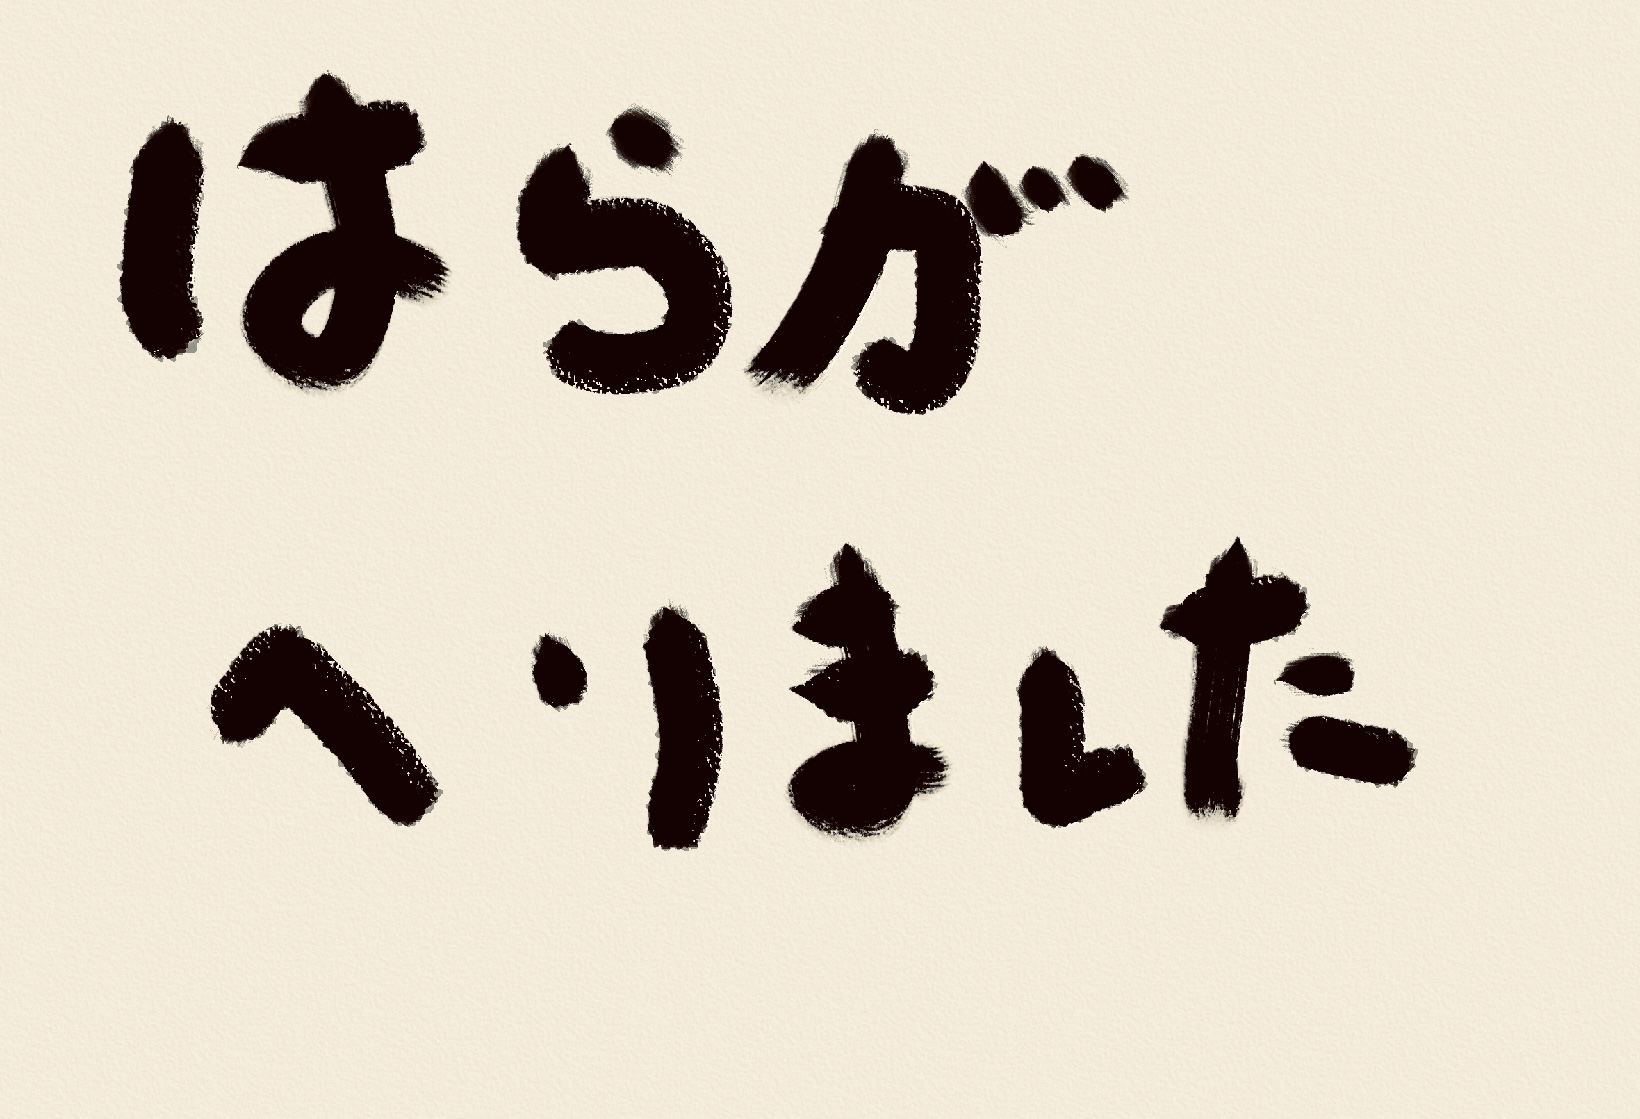 はらが
へりました